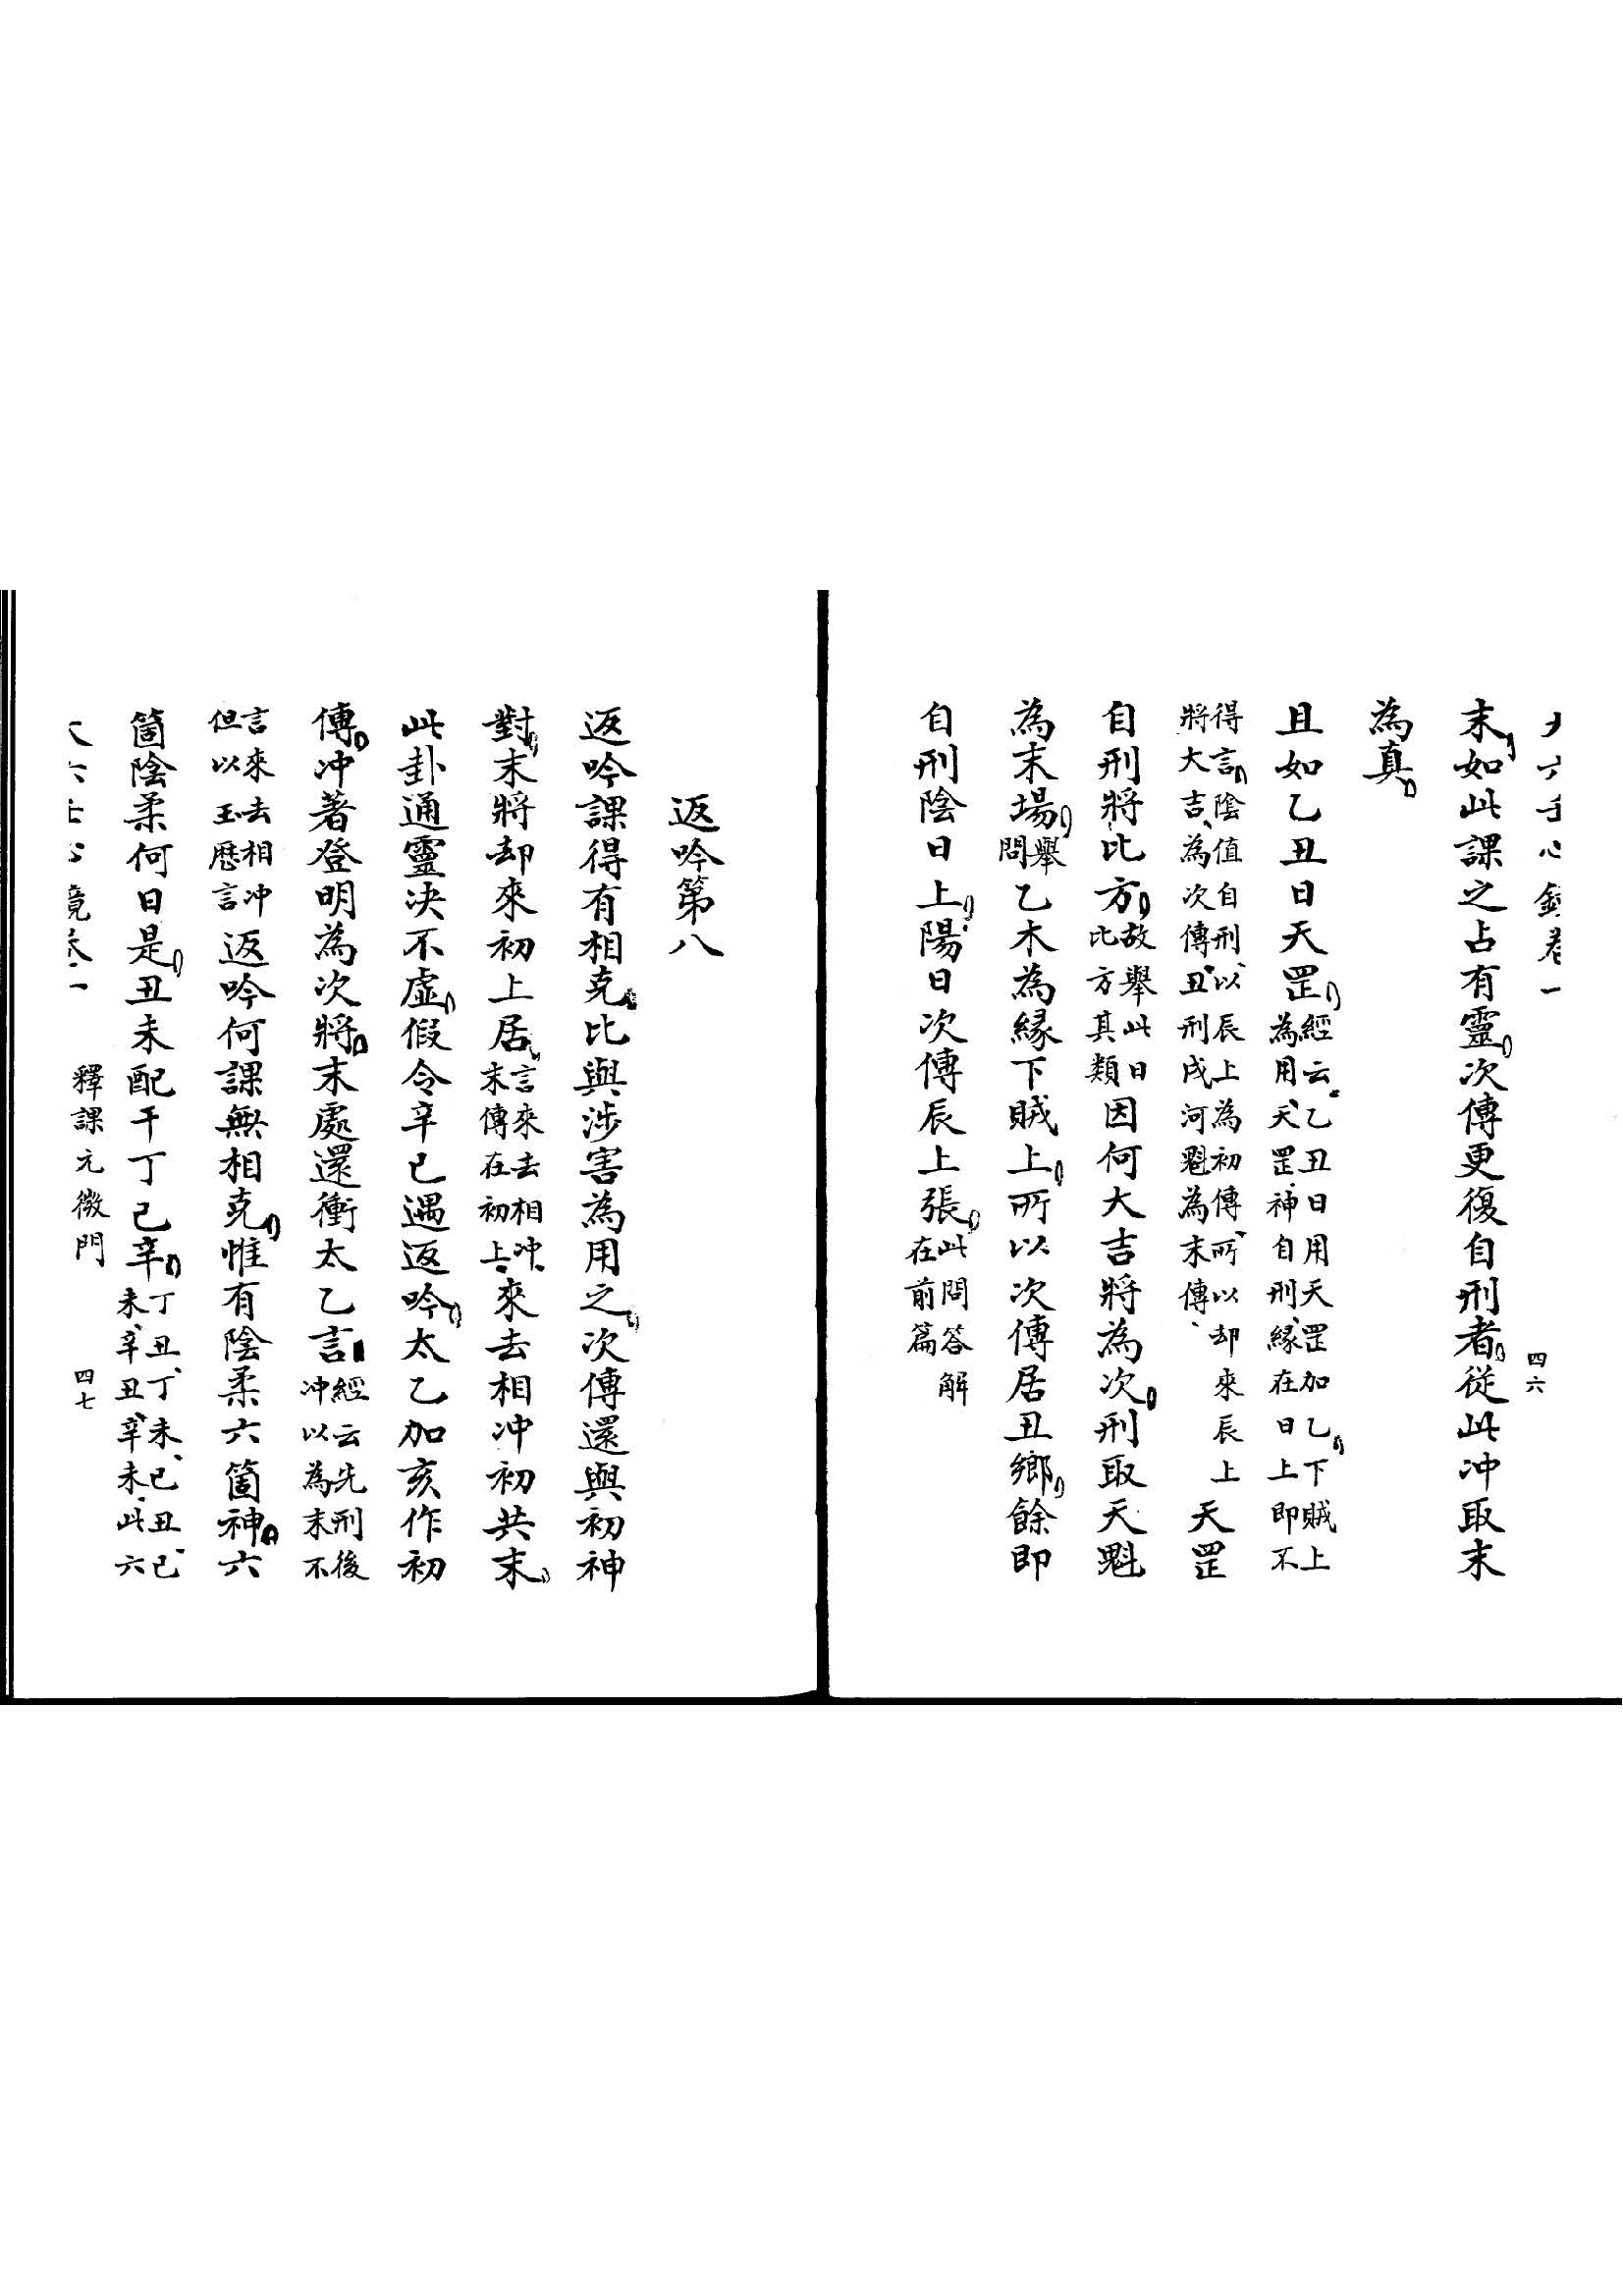 大六壬心鏡卷一
四六
末如此課之占有靈次傳更復自刑者從此冲取末
為真
且如乙丑日天罡經云乙丑日用天罡加乙下賊上為用天罡神自刑緣在日上即不
得言陰值自刑以辰上為初傳所以却來辰上將大吉為次傳丑刑戌河魁為末傳天罡
自刑將比方故舉此日比方其類因何大吉將為次刑取天魁
為末場舉問乙木為緣下賊上所以次傳居丑鄉餘即
自刑陰日上陽日次傳辰上張此問答解在前篇
返吟第八
返吟課得有相克比與涉害為用之次傳還與初神
對末將却來初上居言來去相冲末傳在初上來去相冲初共末
此卦通靈決不虛假令辛巳遇返吟太乙加亥作初
傳冲著登明為次將末處還衝太乙言經云先刑後冲以為末不
言來去相冲但以玉歷言返吟何課無相克惟有陰柔六箇神六
箇陰柔何日是丑未配干丁己辛丁丑丁未己丑己未辛丑辛未此六
大六壬心鏡卷一
釋課元微門
四七